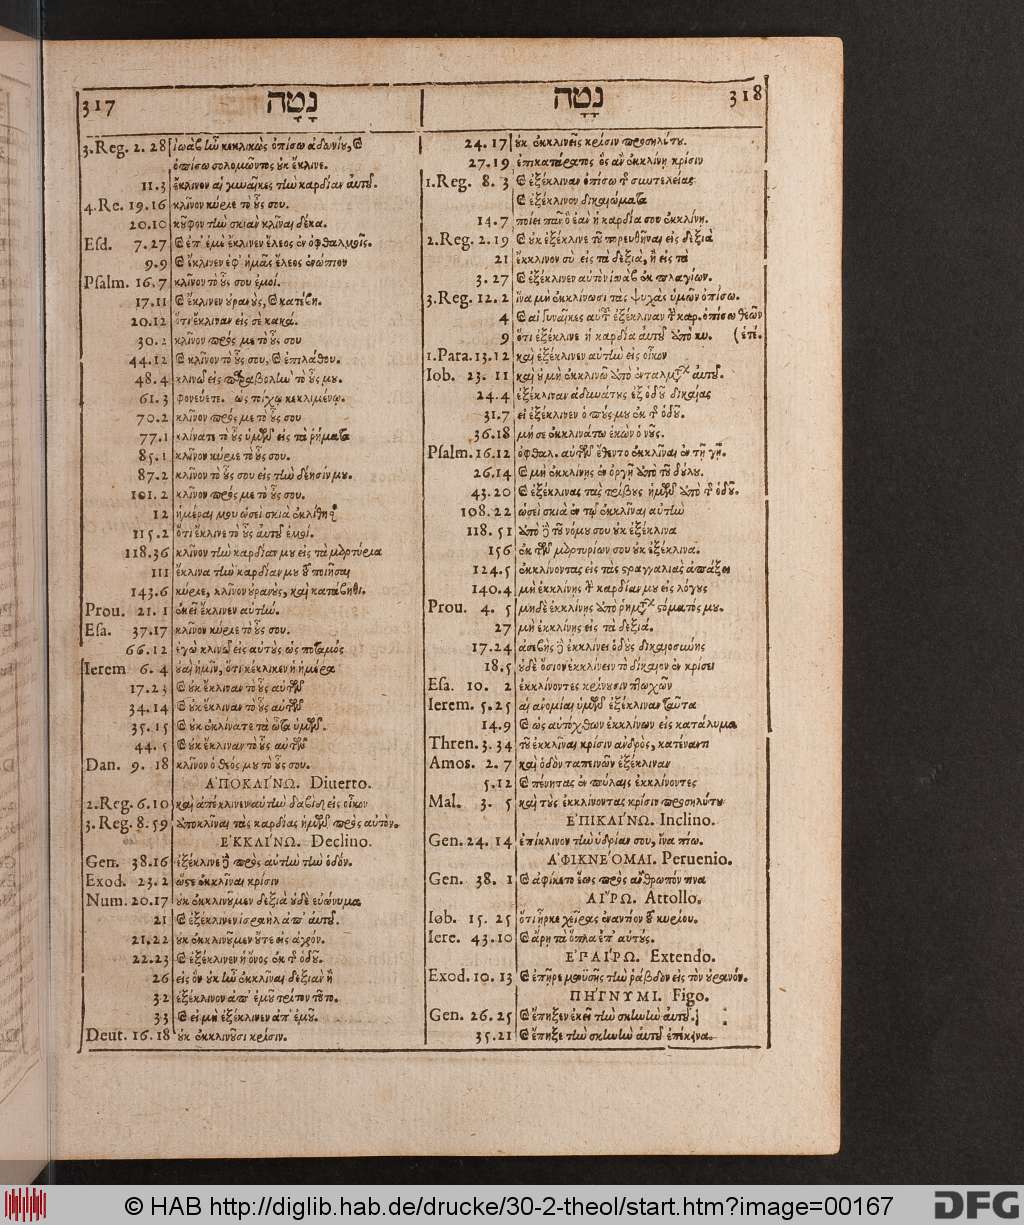 317 נָטָה
3.Reg. 2. 28 ἰωὰβ ἦν κεκλικὼς ὀπίσω ἀδωνίου, καὶ
ὀπίσω σολομῶντος οὐκ ἔκλινε.
11.3 ἔκλινον αἱ γυναῖκες τὴν καρδίαν αὐτοῦ.
4.Re. 19.16 κλῖνον κύριε τὸ οὖς σου.
20.10 κοῦφον τὴν σκιὰν κλῖναι δέκα.
Esd. 7.27 καὶ ἐπ' ἐμὲ ἔκλινεν ἔλεος ἐν ὀφθαλμοῖς.
9.9 καὶ ἔκλινεν ἐφ' ἡμᾶς ἔλεος ἐνώπιον
Psalm. 16.7 κλῖνον τὸ οὖς σου ἐμοί.
17.11 καὶ ἔκλινεν οὐρανοὺς, καὶ κατέβη.
20.12 ὅτι ἔκλιναν εἰς σὲ κακά.
30.2 κλῖνον πρός με τὸ οὖς σου
44.12 καὶ κλῖνον τὸ οὖς σου, καὶ ἐπιλάθου.
48.4 κλινῶ εἰς παραβολὴν τὸ οὖς μου.
61.3 φονεύετε. ὡς τοίχῳ κεκλιμένῳ.
70.2 κλῖνον πρός με τὸ οὖς σου
77.1 κλίνατε τὸ οὖς ὑμῶν εἰς τὰ ῥήματα
85.1 κλῖνον κύριε τὸ οὖς σου.
87.2 κλῖνον τὸ οὖς σου εἰς τὴν δέησίν μου.
101.2 κλῖνον πρός με τὸ οὖς σου.
12 ἡμέραι μου ὡσεὶ σκιὰ ἐκλίθησαν
115.2 ὅτι ἔκλινε τὸ οὖς αὐτοῦ ἐμοί.
118.36 κλῖνον τὴν καρδίαν μου εἰς τὰ μαρτύρια
111 ἔκλινα τὴν καρδίαν μου τοῦ ποιῆσαι
143.6 κύριε, κλῖνον οὐρανοὺς, καὶ κατάβηθι.
Prou. 21. 1 ἐκεῖ ἔκλινεν αὐτήν.
Esa. 37.17 κλῖνον κύριε τὸ οὖς σου.
66.12 ἐγὼ κλινῶ εἰς αὐτοὺς ὡς ποταμός
Ierem 6. 4 οὐαὶ ἡμῖν, ὅτι κέκλικεν ἡ ἡμέρα
17.23 καὶ οὐκ ἔκλιναν τὸ οὖς αὐτῶν
34.14 καὶ οὐκ ἔκλιναν τὸ οὖς αὐτῶν
35.15 καὶ οὐκ ἐκλίνατε τὰ ὦτα ὑμῶν.
44.5 καὶ οὐκ ἔκλιναν τὸ οὖς αὐτῶν
Dan. 9. 18 κλῖνον ὁ θεός μου τὸ οὖς σου.
ἈΠΟΚΛΊΝΩ. Diuerto.
2.Reg. 6.10 καὶ ἀπέκλινεν αὐτὴν δαβὶδ εἰς οἶκον
3.Reg. 8.59 ἀποκλῖναι τὰς καρδίας ἡμῶν πρὸς αὐτόν.
ἘΚΚΛΊΝΩ. Declino.
Gen. 38.16 ἐξέκλινε δὲ πρὸς αὐτὴν τὴν ὁδόν.
Exod. 23.2 ὥστε ἐκκλῖναι κρίσιν
Num. 20.17 οὐκ ἐκκλινοῦμεν δεξιὰ οὐδὲ εὐώνυμα
21 καὶ ἐξέκλινεν ἰσραὴλ ἀπ' αὐτοῦ.
21.22 οὐκ ἐκκλινοῦμεν οὔτε εἰς ἀγρόν.
22.23 καὶ ἐξέκλινεν ἡ ὄνος ἐκ τῆς ὁδοῦ.
26 εἰς ὃν οὐκ ἦν ἐκκλῖναι δεξιὰν ἢ
32 ἐξέκλινον ἀπ' ἐμοῦ τρίτον τοῦτο.
33 καὶ εἰ μὴ ἐξέκλινεν ἀπ' ἐμοῦ.
Deut. 16.18 οὐκ ἐκκλινοῦσι κρίσιν.
נָטָה 318
24.17 οὐκ ἐκκλινεῖς κρίσιν προσηλύτου.
27.19 ἐπικατάρατος ὃς ἂν ἐκκλίνῃ κρίσιν
1.Reg. 8. 3 καὶ ἐξέκλιναν ὀπίσω τῆς συντελείας
καὶ ἐξέκλινον δικαιώματα
14.7 ποίει πᾶν ὃ ἐὰν ἡ καρδία σου ἐκκλίνῃ.
2.Reg. 2.19 καὶ οὐκ ἐξέκλινε τοῦ πορευθῆναι εἰς δεξιὰ
21 ἔκκλινον σὺ εἰς τὰ δεξιὰ, ἢ εἰς τὰ
3.27 καὶ ἐξέκλινεν αὐτὸν ἰωὰβ ἐκ πλαγίων.
3.Reg. 12.2 ἵνα μὴ ἐκκλίνωσι τὰς ψυχὰς ὑμῶν ὀπίσω.
4 καὶ αἱ γυναῖκες αὐτοῦ ἐξέκλιναν τὴν καρ. ὀπίσω θεῶν
9 ὅτι ἐξέκλινε ἡ καρδία αὐτοῦ ἀπὸ κυ. (ἑτέ.
1.Para. 13.12 καὶ ἐξέκλινεν αὐτὴν εἰς οἶκον
Iob. 23. 11 καὶ οὐ μὴ ἐκκλίνω ἀπὸ ἐνταλμάτων αὐτοῦ.
24.4 ἐξέκλιναν ἀδυνάτους ἐξ ὁδοῦ δικαίας
31.7 εἰ ἐξέκλινεν ὁ πούς μου ἐκ τῆς ὁδοῦ.
36.18 μή σε ἐκκλινάτω ἑκὼν ὁ νοῦς.
Psalm. 16.12 ὀφθαλ. αὐτῶν ἔθεντο ἐκκλῖναι ἐν τῇ γῇ.
26.14 καὶ μὴ ἐκκλίνῃς ἐν ὀργῇ ἀπὸ τοῦ δούλου.
43.20 καὶ ἐξέκλινας τὰς τρίβους ἡμῶν ἀπὸ τῆς ὁδοῦ.
108.22 ὡσεὶ σκιὰ ἐν τῷ ἐκκλῖναι αὐτὴν
118. 51 ἀπὸ δὲ τοῦ νόμου σου οὐκ ἐξέκλινα
156 ἐκ τῶν μαρτυρίων σου οὐκ ἐξέκλινα.
124.5 ἐκκλίνοντας εἰς τὰς στραγγαλιὰς ἀπάξει
140.4 μὴ ἐκκλίνῃς τὴν καρδίαν μου εἰς λόγους
Prou. 4. 5 μηδὲ ἐκκλίνῃς ἀπὸ ῥημάτων στόματός μου.
27 μὴ ἐκκλίνῃς εἰς τὰ δεξιά.
17.24 ἀσεβὴς δὲ ἐκκλίνει ὁδοὺς δικαιοσύνης
18.5 οὐδὲ ὅσιον ἐκκλίνειν τὸ δίκαιον ἐν κρίσει
Esa. 10. 2 ἐκκλίνοντες κρίνουσιν πτωχῶν
Ierem. 5.25 αἱ ἀνομίαι ὑμῶν ἐξέκλιναν ταῦτα
14.9 καὶ ὡς αὐτόχθων ἐκκλίνων εἰς κατάλυμα
Thren. 3.34 τοῦ ἐκκλῖναι κρίσιν ἀνδρὸς, κατέναντι
Amos. 2. 7 καὶ ὁδὸν ταπεινῶν ἐξέκλιναν
5.12 καὶ πένητας ἐν πύλαις ἐκκλίνοντες
Mal. 3. 5 καὶ τοὺς ἐκκλίνοντας κρίσιν προσηλύτου
ἘΠΙΚΛΊΝΩ. Inclino.
Gen. 24. 14 ἐπίκλινον τὴν ὑδρίαν σου, ἵνα πίω.
ἈΦΙΚΝΈΟΜΑΙ. Peruenio.
Gen. 38. 1 καὶ ἀφίκετο ἕως πρὸς ἄνθρωπόν τινα
ΑἼΡΩ. Attollo.
Iob. 15. 25 ὅτι ἦρκε χεῖρας ἐναντίον τοῦ κυρίου.
Iere. 43.10 καὶ ἄρῃ τὰ ὅπλα ἐπ' αὐτούς.
ἘΠΑΊΡΩ. Extendo.
Exod. 10. 13 καὶ ἐπῆρε μωϋσῆς τὴν ῥάβδον εἰς τὸν οὐρανόν.
ΠΉΓΝΥΜΙ. Figo.
Gen. 26. 25 καὶ ἔπηξεν ἐκεῖ τὴν σκηνὴν αὐτοῦ.
35.21 καὶ ἔπηξε τὴν σκηνὴν αὐτοῦ ἐπέκεινα.
© HAB http://diglib.hab.de/drucke/30-2-theol/start.htm?image=00167
DFG